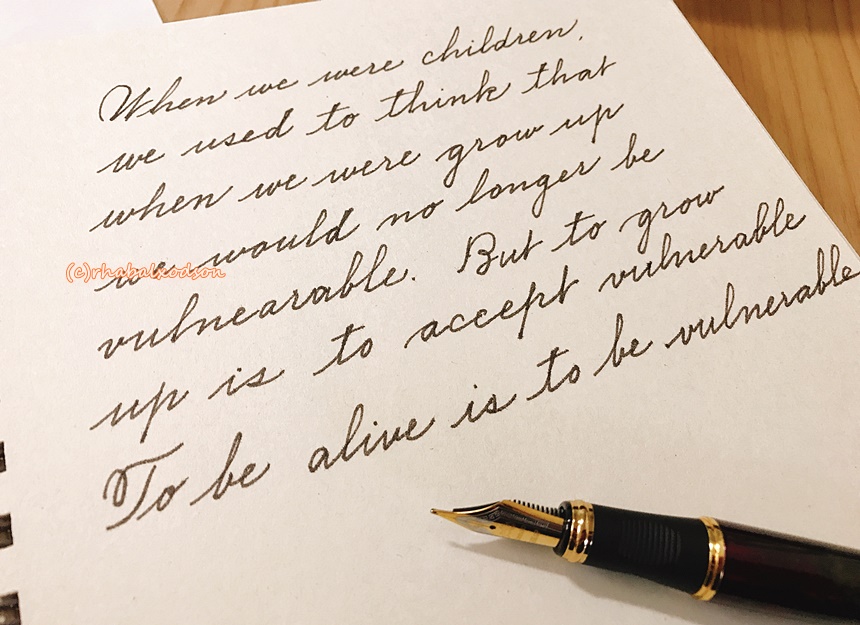 When we were children,
we used to think that
when we were grow up
we would no longer be
(c)rhabalxodson
vulnearable. But to grow
up is to accept vulnerable
To be alive is to be vulnerable